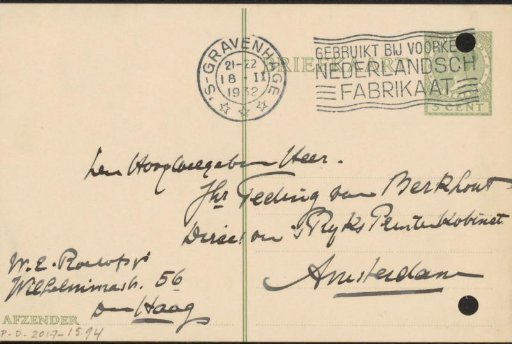 'S-GRAVENHAGE
21-22
18-II
1932
GEBRUIKT BIJ VOORKE
NEDERLANDSCH
FABRIKAAT
BRIEFKAART
5 CENT
Den Hoogwelgeboren Heer.
Jhr Teding van Berkhout
Direc van 's Ryks Prentenkabinet
Amsterdam
W. E.
Wilhelminastr. 56
Den Haag
AFZENDER
P-D-2017-1594